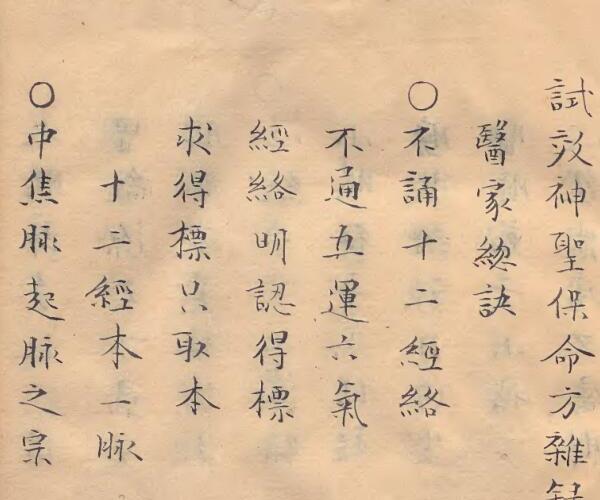 試效神聖保命方雜
醫家總訣
○不誦十二經絡
不通五運六氣
經絡明認得標
求得標只取本
十二經本一脉
○中焦脉起脉之宗